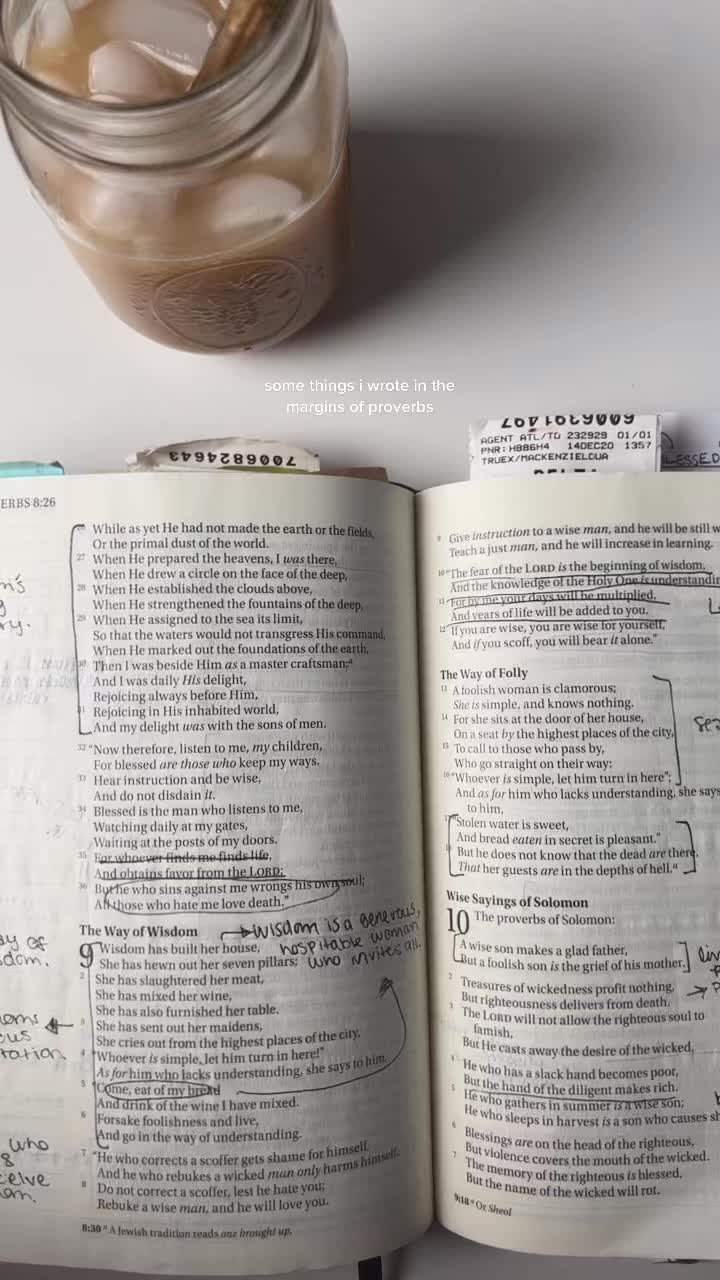 some things i wrote in the
margins of proverbs
7006824643
6009631497
AGENT ATL/TO 232929 01/01
PNR: H886H4 14DEC20 1357
TRUEX/MACKENZIELOUA
LESSED
ERBS-8:26
While as yet He had not made the earth or the fields,
Or the primal dust of the world.
27 When He prepared the heavens, I was there,
When He drew a circle on the face of the deep,
28 When He established the clouds above,
When He strengthened the fountains of the deep,
29 When He assigned to the sea its limit,
So that the waters would not transgress His command,
When He marked out the foundations of the earth,
30 Then I was beside Him as a master craftsman;a
And I was daily His delight,
Rejoicing always before Him,
31 Rejoicing in His inhabited world,
And my delight was with the sons of men.
32 "Now therefore, listen to me, my children,
For blessed are those who keep my ways.
33 Hear instruction and be wise,
And do not disdain it.
34 Blessed is the man who listens to me,
Watching daily at my gates,
Waiting at the posts of my doors.
35 For whoever finds me finds life,
And obtains favor from the LORD;
36 But he who sins against me wrongs his own soul;
All those who hate me love death."
The Way of Wisdom
→ Wisdom is a generous,
hospitable woman
who invites all.
9 Wisdom has built her house,
She has hewn out her seven pillars;
2 She has slaughtered her meat,
She has mixed her wine,
She has also furnished her table.
3 She has sent out her maidens,
She cries out from the highest places of the city,
4 "Whoever is simple, let him turn in here!"
As for him who lacks understanding, she says to him,
5 "Come, eat of my bread
And drink of the wine I have mixed.
6 Forsake foolishness and live,
And go in the way of understanding.
7 "He who corrects a scoffer gets shame for himself,
And he who rebukes a wicked man only harms himself.
8 Do not correct a scoffer, lest he hate you;
Rebuke a wise man, and he will love you.
8:30 a A Jewish tradition reads one brought up.
9 Give instruction to a wise man, and he will be still w
Teach a just man, and he will increase in learning.
10 "The fear of the LORD is the beginning of wisdom,
And the knowledge of the Holy One is understandin
11 For by me your days will be multiplied,
And years of life will be added to you.
12 If you are wise, you are wise for yourself,
And if you scoff, you will bear it alone."
The Way of Folly
13 A foolish woman is clamorous;
She is simple, and knows nothing.
14 For she sits at the door of her house,
On a seat by the highest places of the city,
15 To call to those who pass by,
Who go straight on their way:
16 "Whoever is simple, let him turn in here";
And as for him who lacks understanding, she says
to him,
17 "Stolen water is sweet,
And bread eaten in secret is pleasant."
18 But he does not know that the dead are there,
That her guests are in the depths of hell.a
Wise Sayings of Solomon
10 The proverbs of Solomon:
A wise son makes a glad father,
But a foolish son is the grief of his mother.
2 Treasures of wickedness profit nothing,
But righteousness delivers from death.
3 The LORD will not allow the righteous soul to
famish,
But He casts away the desire of the wicked.
4 He who has a slack hand becomes poor,
But the hand of the diligent makes rich.
5 He who gathers in summer is a wise son;
He who sleeps in harvest is a son who causes sh
6 Blessings are on the head of the righteous,
But violence covers the mouth of the wicked.
7 The memory of the righteous is blessed,
But the name of the wicked will rot.
9:18 a Or Sheol